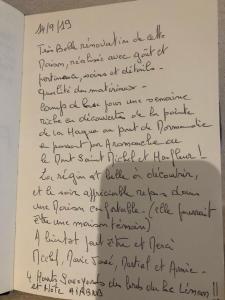 14/9/19
Très Belle rénovation de cette
Maison, réalisée avec goût et
pertinence, soins et détails.
qualité des matériaux.
Camp de base pour une semaine
riche en découvertes de la pointe
de la Hague au pont de Normandie
en passant par Arromanches ou
le Mont Saint Michel et Honfleur !
La région est belle à découvrir,
et le soir appréciable repos dans
une Maison confortable. (elle pourrait
être une maison témoin)
A bientôt peut être et Merci
Michel, Marie José, Martial et Annie.
4 Hauts Savoyards des bords du Lac Léman !!
et Hôte AIRBNB